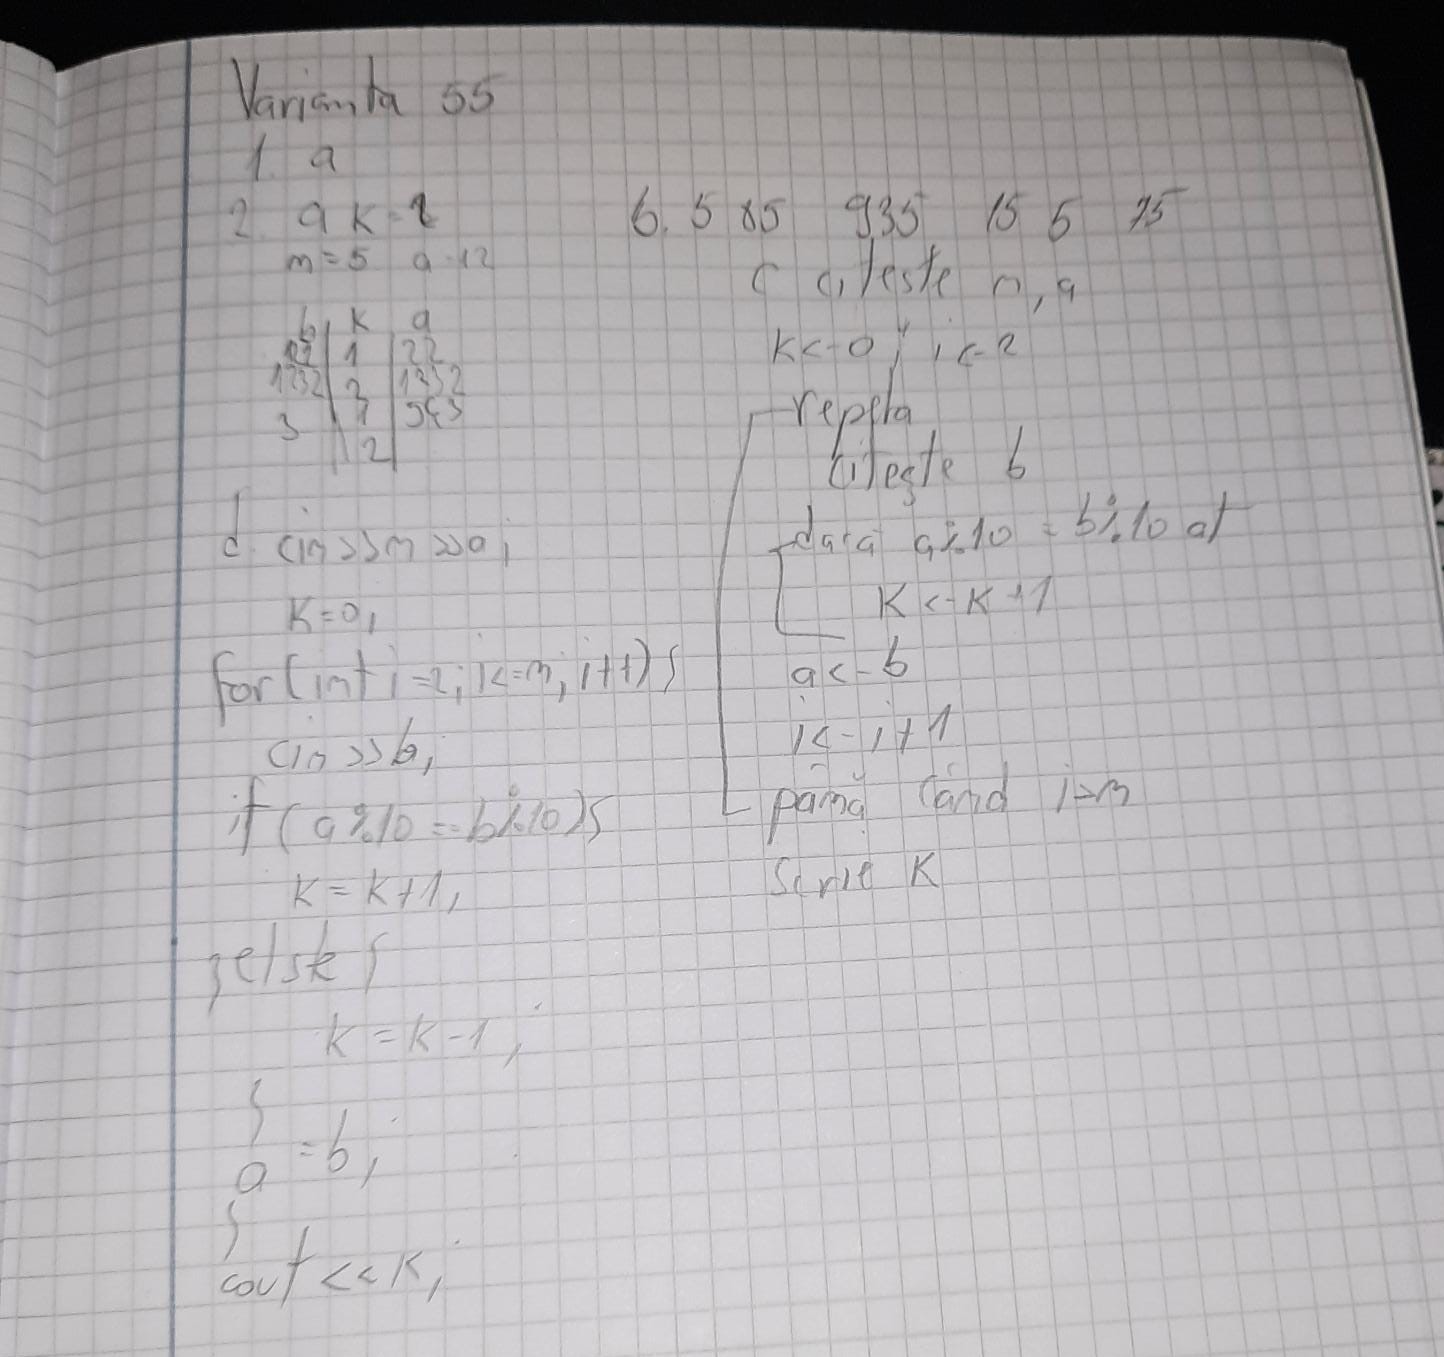 Varianta 55
1. a
2. a k=2
m=5 a 12
b k a
22 1 22
1232 3 1232
3 3 543
2
d. cin>>n>>a;
k=0;
for(int i=2; i<=n; i++){
cin>>b;
if(a%10==b%10){
k=k+1;
}else{
k=k-1;
}
a=b;
}
cout<<k;
b. 5 85 935 15 5 75
c citeste n,a
k<-0; i<-2
repeta
citeste b
daca a%10=b%10 at
k<-k+1
a<-b
i<-i+1
până când i>n
scrie k